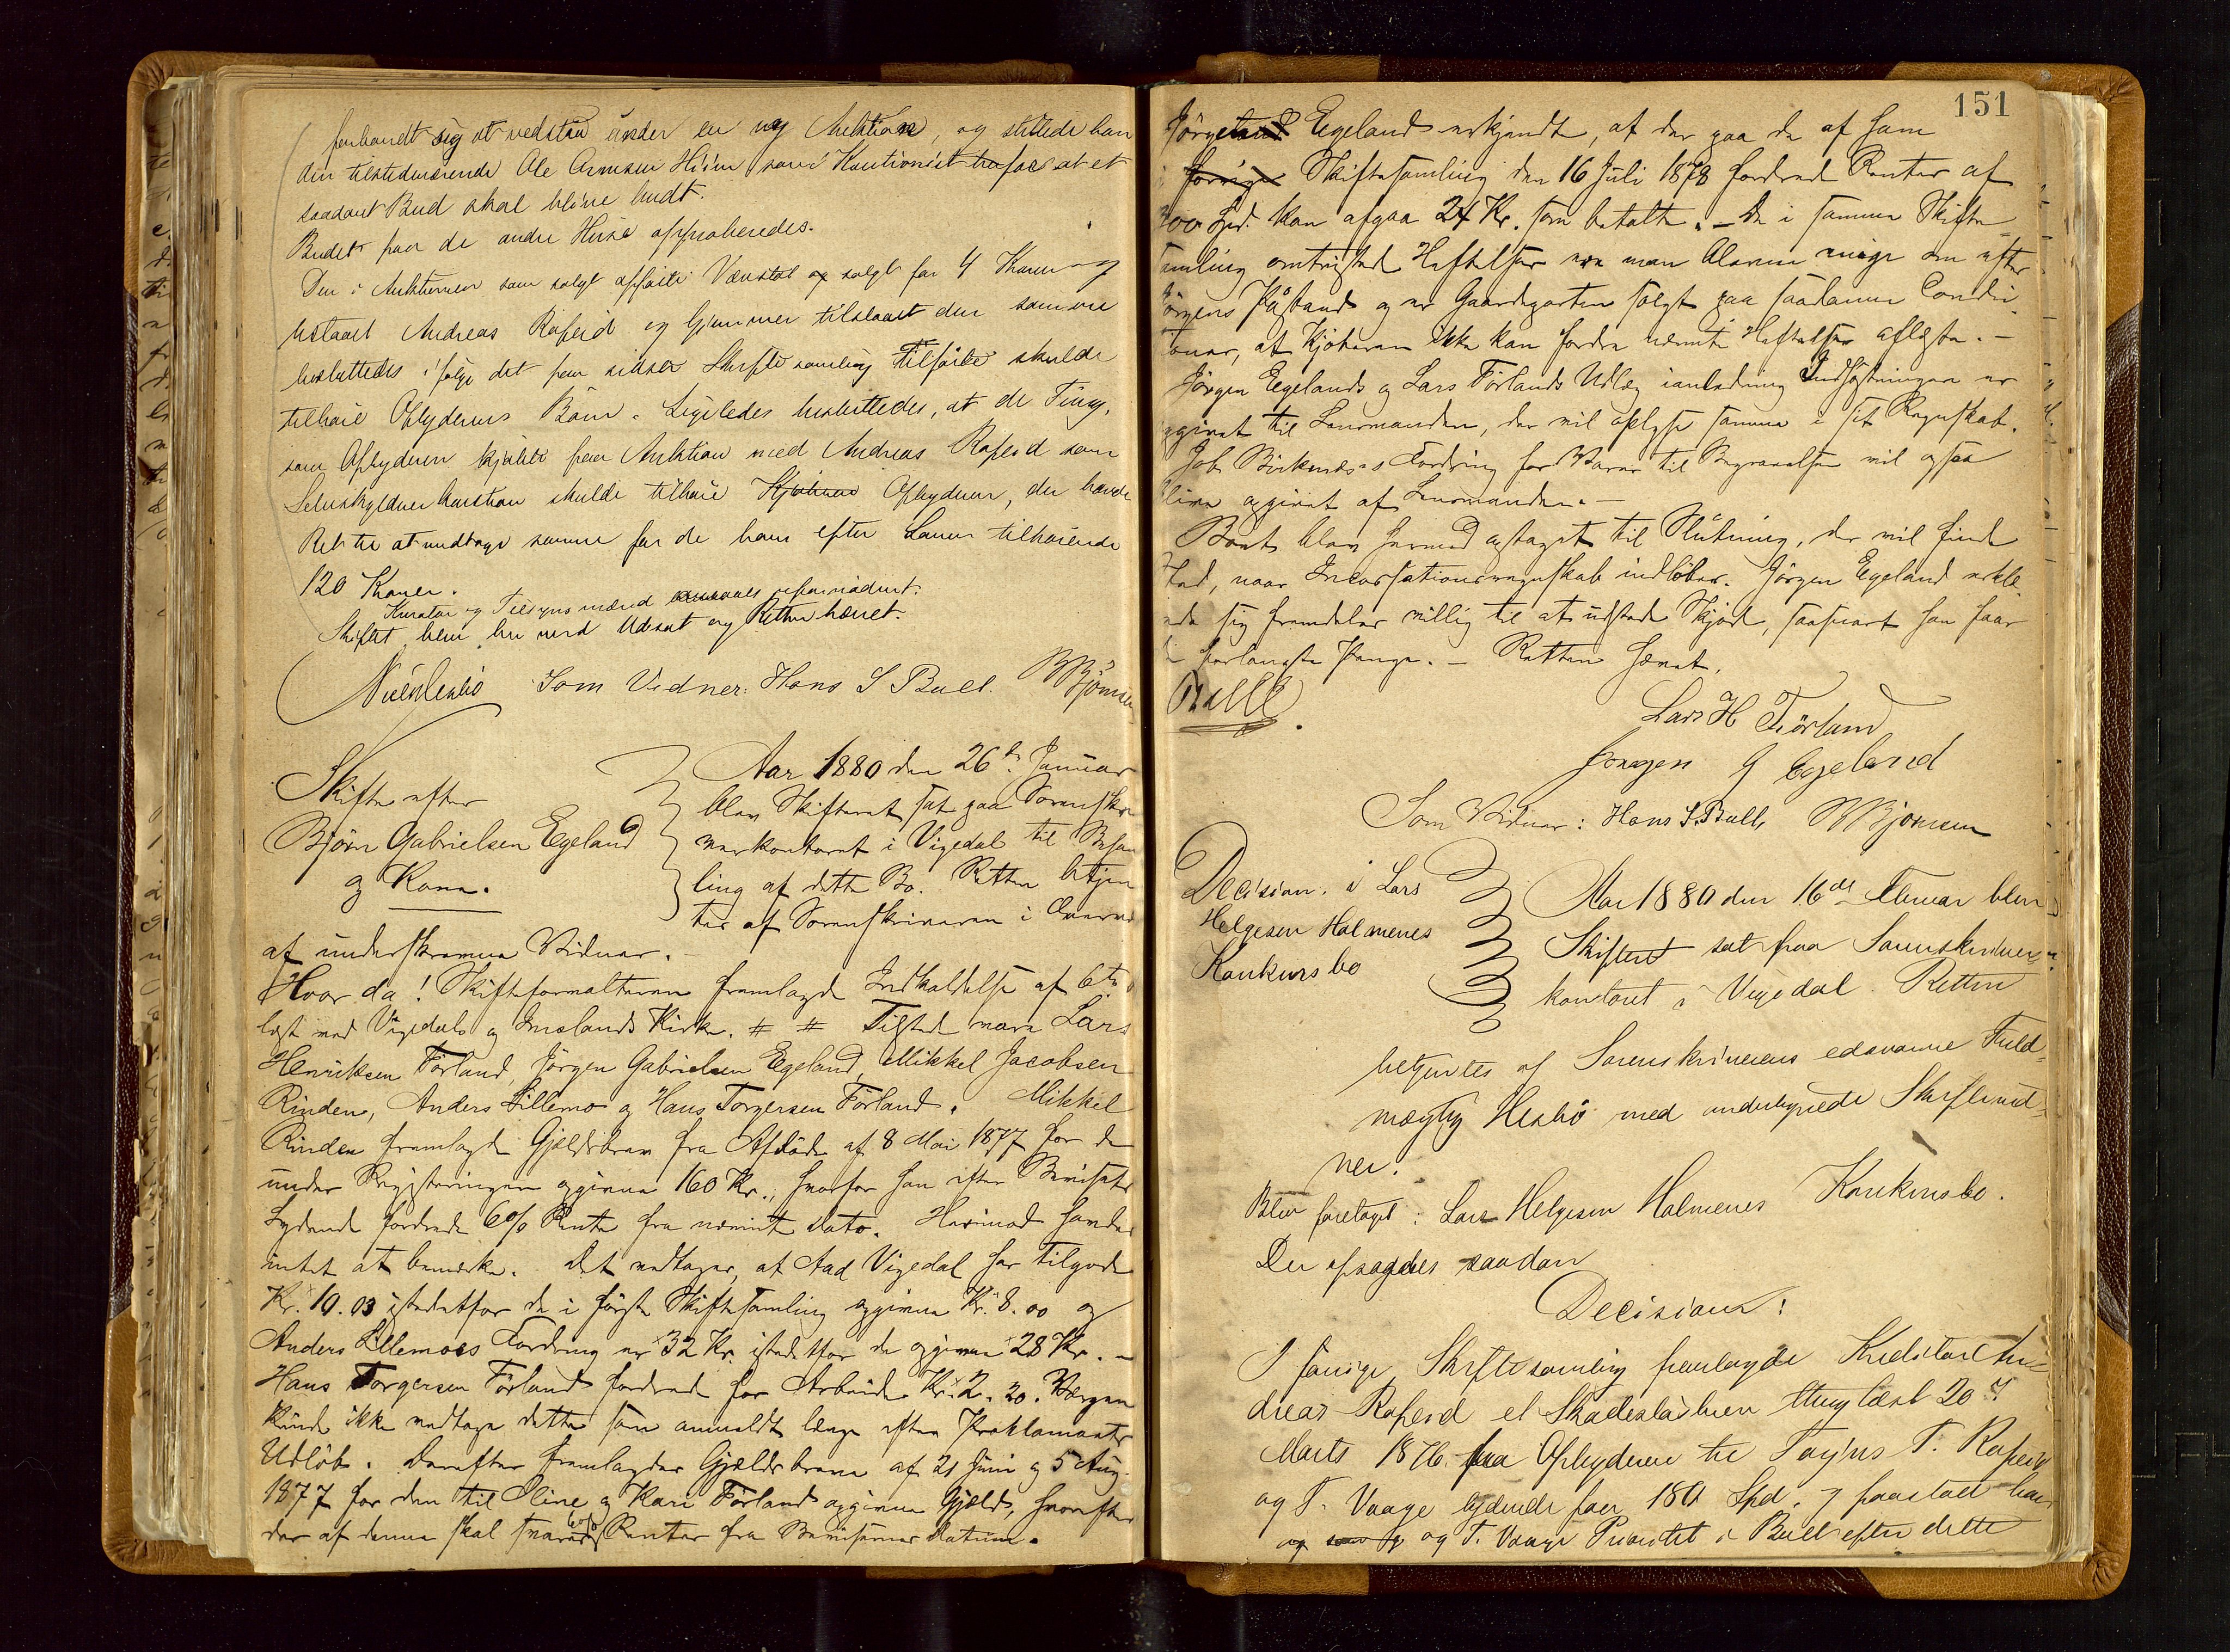 forbandt sig at vedstaa under en ny Auktion, og stillede han
den tilstedeværende Ole Arnesen som Kautionist for at et
saadant Bud skal blive budt.
Budet paa de andre Huse approberedes.
Den i Auktionen som solgt opførte Vævstol solgt for 4 Kroner og
tilslaaet Andreas Rafeid og tilslaaet den samme
besluttedes ifølge det paa sidste Skiftesamling tilførte skulde
tilhøre Opbyderens Børn. Ligeledes besluttedes, at de Ting,
som Opbyderen kjøbte paa Auktion med Andreas Rafeid som
Selvskyldnerkautionist skulde tilhøre Kjøberen Opbyderen, der havde
Ret til at modtage samme for de ham efter Loven tilkommende
120 Kroner.
Kurator og Tilsynsmænd
Skiftet blev hermed Udsat og Retten hævet.
Som Vidner: Hans S Bull. Bjørnsen
Skifte efter
Bjørn Gabrielsen Egeland
og Kone.
Aar 1880 den 26de Januar
blev Skifteret sat paa Sorenskri-
verkontoret i Vigedal til Behan
ling af dette Bo. Retten betjen
tes af Sorenskriveren i Overvær
af underskrevne Vidner.
Hvor da! Skifteforvalteren fremlagde Indkaldelse af 6te
læst ved Vigedals og Imslands Kirke. # # Tilstede vare Lars
Henriksen Førland, Jørgen Gabrielsen Egeland, Mikkel Jacobsen
Rinden, Anders Lillemo og Hans Torgersen Førland. Mikkel
Rinden fremlagde Gjeldsbrev fra Afdøde af 8 Mai 1877 for de
under Registreringen opgivne 160 Kr., hvorfor han efter Bevisets
Lydende fordrede 6% Rente fra nævnt Dato. Herimod havdes
intet at bemærke. Det vedtages, at Aad Vigedal har tilgode
Kr. 10.03 istedetfor de i første Skiftesamling opgivne Kr. 8.00 og
Anders Lillemoes Fordring er 32 Kr. istedetfor de opgivne 28 Kr. —
Hans Torgersen Førland fordrede for Arbeide Kr. 2.20. Børgen
kunde ikke vedtage dette som anmeldt længe efter Proklamaets
Udløb. Derefter fremlagdes Gjeldsbreve af 21 Juni og 5 Aug.
1877 for den til Oline og Kari Førland opgivne Gjeld, hvorefter
der af denne skal svares 6% Renter fra Bevisernes Datum.
151
Jørgen Egeland erkjendte, at der paa de af ham
i forrige Skiftesamling den 16 Juli 1878 fordrede Renter af
300 Spd. kan afgaa 24 Kr. som betalt. — De i samme Skifte
samling omtvistede Heftelser
Jørgens Paastand og er Gaardparten solgt paa saadanne Condi-
tioner, at Kjøberen ikke kan fordre nævnte Heftelser aflæste. —
Jørgen Egelands og Lars Førlands Udlæg ianledning Indhøstningen er
opgivet til Lensmanden, der vil oplyse samme i sit Regnskab.
Job Birkenæs's Fordring for Varer til Begravelsen vil ogsaa
blive opgivet af Lensmanden. —
Boet blev hermed optaget til Slutning, der vil finde
Sted, naar Incassationsregnskab indløber. Jørgen Egeland erklæ-
rede sig fremdeles villig til at udstede Skjøde, saasnart han faar
de forlangte Penge. — Retten hævet.
Lars H Førland
Jorgen G Egeland
Som Vidner: Hans S. Bull, Bjørnsen
Decision. i Lars
Helgesen Halmenes
Konkursbo
Aar 1880 den 16de Februar blev
Skifteret sat paa Sorenskriver
kontoret i Vigedal Retten
betjentes af Sorenskriverens edsvorne Fuld-
mægtig Hesbø med undertegnede Skiftevid-
ner.
Blev foretaget: Lars Helgesen Halmenes Konkursbo.
Der afsagdes saadan
Decision:
I forrige Skiftesamling fremlagde Kreditor An-
dreas Rafeid et Skadesløsbrev thinglæst 20de
Marts 1876 fra Opbyderen til T. Rafeid
og T. Vaage lydende paa 180 Spd. og paastod han
og som og T. Vaage Prioritet i Boet efter dette